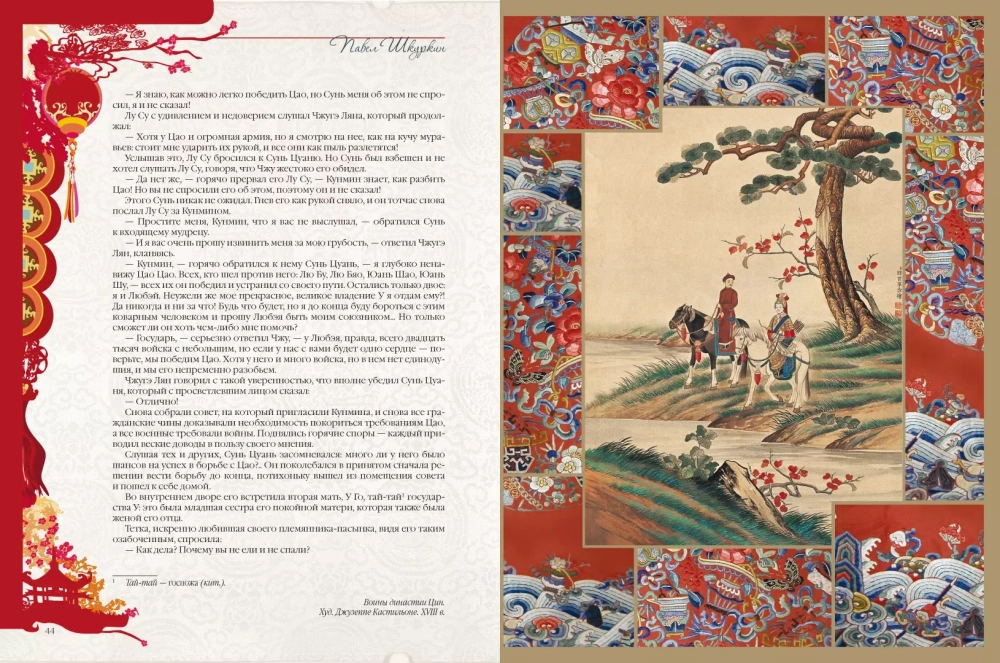 Павел Шкуркин
— Я знаю, как можно легко победить Цао, но Сунь меня об этом не спро-
сил, я и не сказал!
Лу Су с удивлением и недоверием слушал Чжугэ Ляна, который продол-
жал:
— Хотя у Цао и огромная армия, но я смотрю на нее, как на кучу мура-
вьев: стоит мне ударить их рукой, и все они как пыль разлетятся!
Услышав это, Лу Су бросился к Сунь Цуаню. Но Сунь был взбешен и не
хотел слушать Лу Су, говоря, что Чжу жестоко его обидел.
— Да нет же, — горячо прервал его Лу Су, — Кунмин знает, как разбить
Цао! Но вы не спросили его об этом, поэтому он и не сказал!
Этого Сунь никак не ожидал. Гнев его как рукой сняло, и он тотчас снова
послал Лу Су за Кунмином.
— Простите меня, Кунмин, что я вас не выслушал, — обратился Сунь
к входящему мудрецу.
— И я вас очень прошу извинить меня за мою грубость, — ответил Чжугэ
Лян, кланяясь.
— Кунмин, — горячо обратился к нему Сунь Цуань, — я глубоко нена-
вижу Цао Цао. Всех, кто шел против него: Лю Бу, Лю Бяо, Юань Шао, Юань
Шу, — всех их он победил и устранил со своего пути. Остались только двое:
я и Любэй. Неужели же мое прекрасное, великое владение У я отдам ему?!
Да никогда и ни за что! Будь что будет, но я до конца буду бороться с этим
коварным человеком и прошу Любэя быть моим союзником... Но только
сможет ли он хоть чем-либо мне помочь?
— Государь, — серьезно ответил Чжу, — у Любэя, правда, всего двадцать
тысяч войска с небольшим, но если у нас с вами будет одно сердце — по-
верьте, мы победим Цао. Хотя у него и много войска, но в нем нет единоду-
шия, и мы его непременно разобьем.
Чжугэ Лян говорил с такой уверенностью, что вполне убедил Сунь Цуа-
ня, который с просветлевшим лицом сказал:
— Отлично!
Снова собрали совет, на который пригласили Кунмина, и снова все гра-
жданские чины доказывали необходимость покориться требованиям Цао,
а все военные требовали войны. Поднялись горячие споры — каждый при-
водил веские доводы в пользу своего мнения.
Слушая тех и других, Сунь Цуань засомневался: много ли у него было
шансов на успех в борьбе с Цао?.. Он поколебался в принятом сначала ре-
шении вести борьбу до конца, потихоньку вышел из помещения совета
и пошел к себе домой.
Во внутреннем дворе его встретила вторая мать, У Го, тай-тай¹ государ-
ства У: это была младшая сестра его покойной матери, которая также была
женой его отца.
Тетка, искренно любившая своего племянника-пасынка, видя его таким
озабоченным, спросила:
— Как дела? Почему вы не ели и не спали?
¹ Тай-тай — госпожа (кит.).
Воины династии Цин.
Худ. Джузеппе Кастильоне. XVIII в.
44